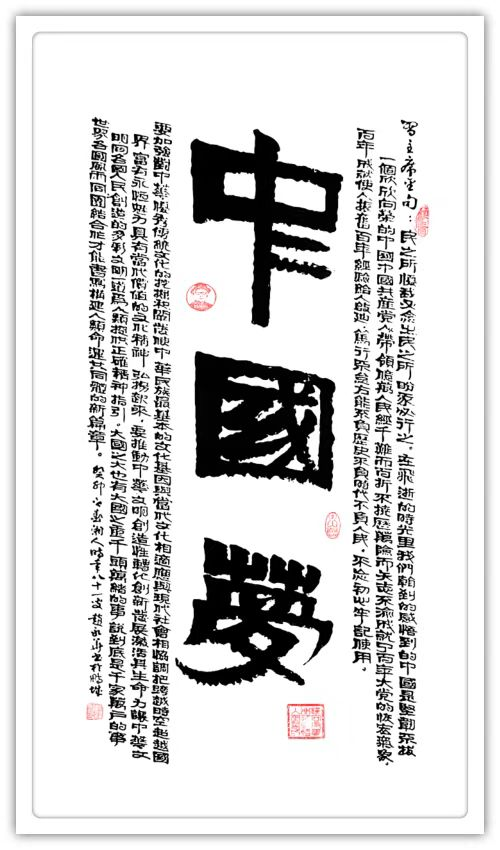 習主席金句：民之所憂我必念之民之所盼我必行之。在飛逝的時光里我們看到的感悟到的中國是堅韌不拔
一個欣欣向榮的中國中國共產黨人帶領億萬人民經千難而百折不撓歷萬險而矢志不渝成就了百年大黨的恢宏氣象，
百年成就使人振奮百年經驗給人啟迪，篤行不怠方能不負歷史不負時代不負人民，不忘初心牢記使用。
中國夢
要加強對中華優秀傳統文化的挖掘和闡發使中華民族最基本的文化基因與當代文化相適應與現代社會相協調把跨越時空超越國
界富有永恒魅力具有當代價值的文化精神弘揚起來，要推動中華文明創造性轉化創新性發展激活其生命力讓中華文
明同各國人民創造的多彩文明一道為人類提供正確精神指引。大國之大也有大國之重千頭萬緒的事，說到底是千家萬戶的事
世界各國風雨同團結合作才能書寫構建人類命運共同體的新篇章。癸卯之春湘人時年八十一叟趙書於鵬城